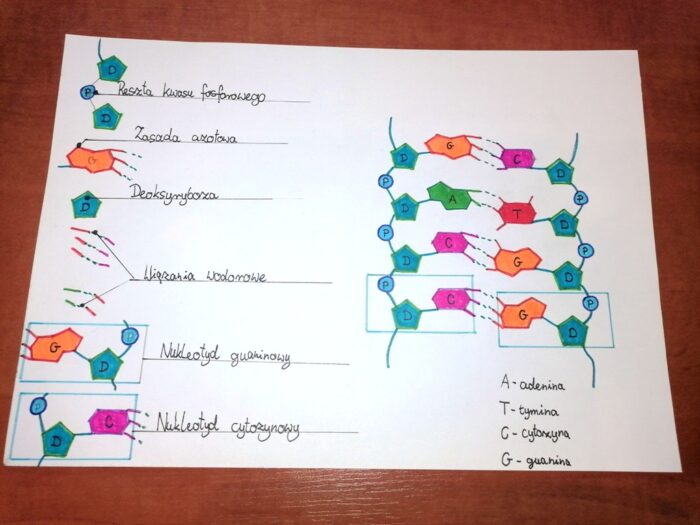 D
P Reszta kwasu fosforowego
D
Zasada azotowa
G
Deoksyryboza
D
Wiązania wodorowe
G D P
Nukleotyd guaninowy
P D C
Nukleotyd cytozynowy
D G C D
P P
D A T D
P P
D C G D
P P
D C G D
A - adenina
T - tymina
C - cytozyna
G - guanina